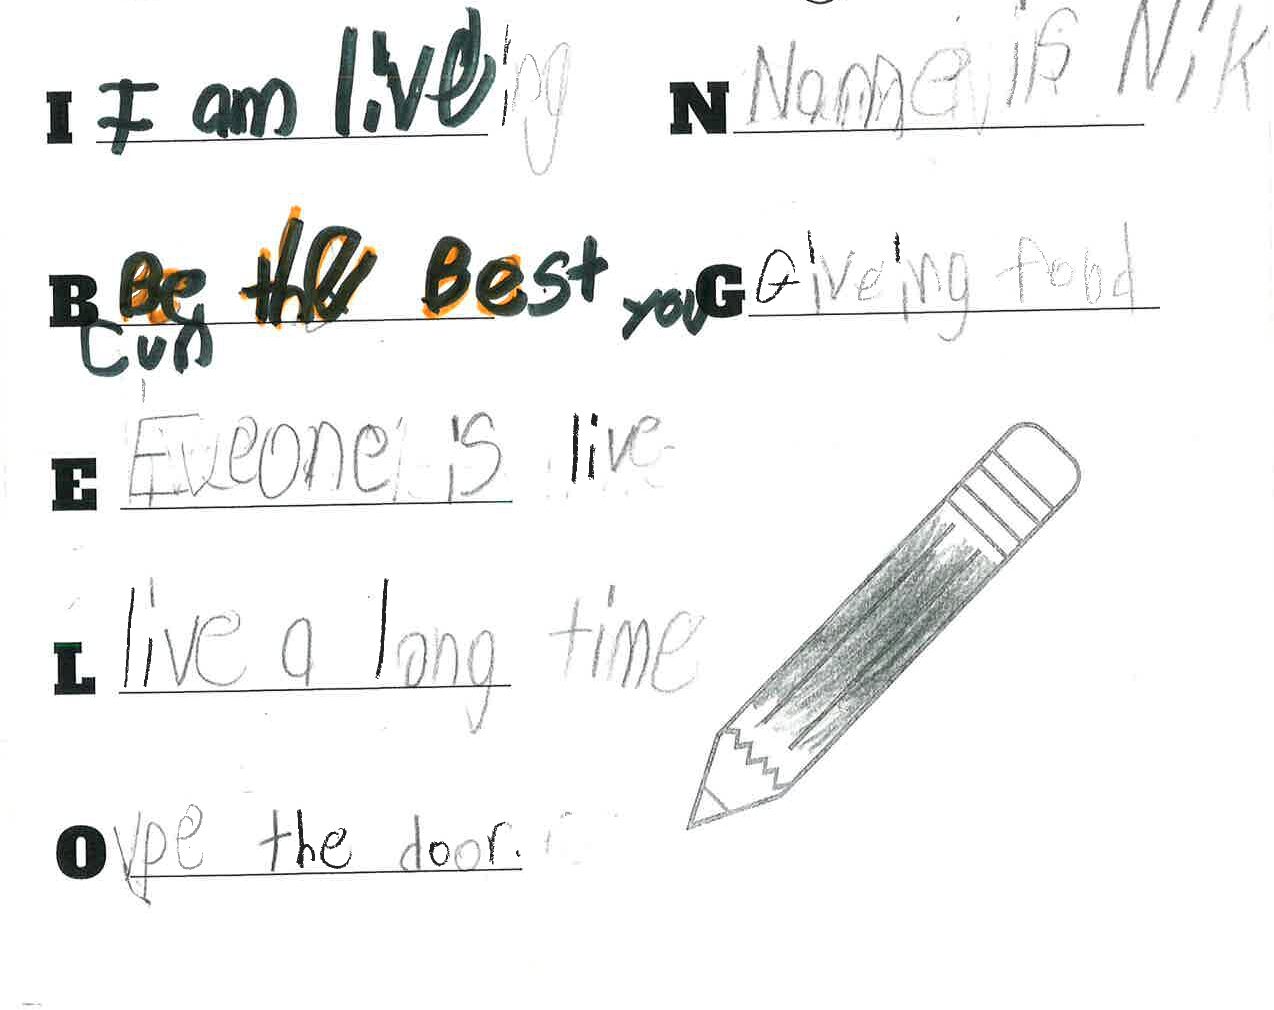 I I am liveing
B Be the Best you
Cun
E Eveone is live
L live a long time
O Vpe the door.
N Name is Nik
G Giveing food